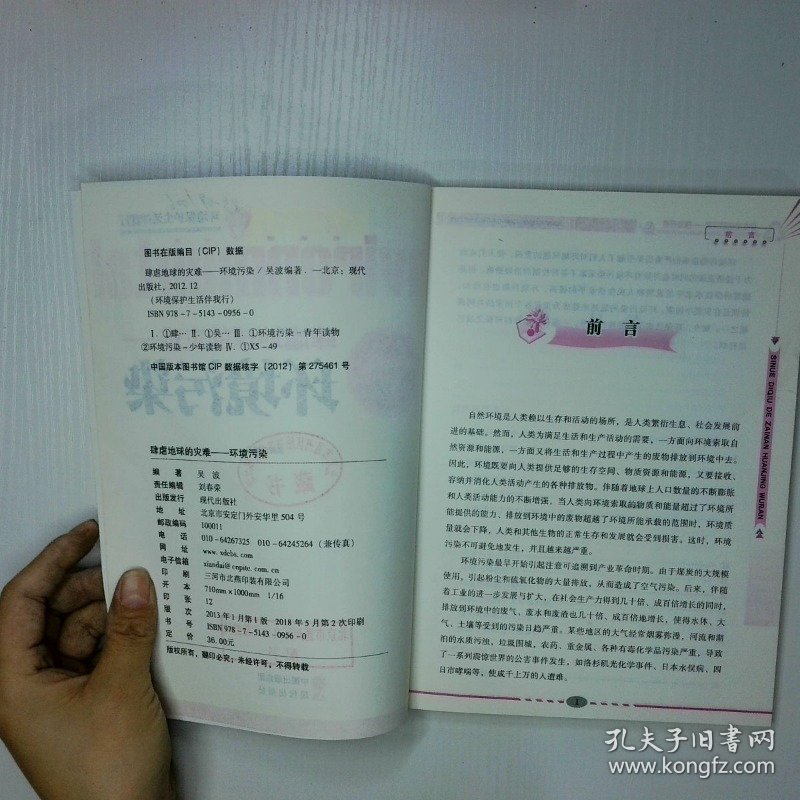 图书在版编目（CIP）数据
肆虐地球的灾难——环境污染 / 吴波编著．—北京：现代
出版社，2012.12
（环境保护生活伴我行）
ISBN 978-7-5143-0956-0
Ⅰ.①肆… Ⅱ.①吴… Ⅲ.①环境污染-青年读物
②环境污染-少年读物 Ⅳ.①X5-49
中国版本图书馆 CIP 数据核字（2012）第 275461 号
肆虐地球的灾难——环境污染
编 著 吴 波
责任编辑 刘春荣
出版发行 现代出版社
地 址 北京市安定门外安华里 504 号
邮政编码 100011
电 话 010-64267325 010-64245264（兼传真）
网 址 www.xdcbs.com
电子信箱 xiandai@cnpitc.com.cn
印 刷 三河市北燕印装有限公司
开 本 710mm×1000mm 1/16
印 张 12
版 次 2013年1月第1版 2018年5月第2次印刷
书 号 ISBN 978-7-5143-0956-0
定 价 36.00元
版权所有，翻印必究；未经许可，不得转载
藏书
前 言
前 言
自然环境是人类赖以生存和活动的场所，是人类繁衍生息、社会发展前
进的基础。然而，人类为满足生活和生产活动的需要，一方面向环境索取自
然资源和能源，一方面又将生活和生产过程中产生的废物排放到环境中去。
因此，环境既要向人类提供足够的生存空间、物质资源和能源，又要接收、
容纳并消化人类活动产生的各种排放物。伴随着地球上人口数量的不断膨胀
和人类活动能力的不断增强，当人类向环境索取的物质和能量超过了环境所
能提供的能力、排放到环境中的废物超越了环境所能承载的范围时，环境质
量就会下降，人类和其他生物的正常生存和发展就会受到损害。这时，环境
污染不可避免地发生，并且越来越严重。
环境污染最早开始引起注意可追溯到产业革命时期。由于煤炭的大规模
使用，引起粉尘和硫氧化物的大量排放，从而造成了空气污染。后来，伴随
着工业的进一步发展与扩大，在社会生产力得到几十倍、成百倍增长的同时，
排放到环境中的废气、废水和废渣也几十倍、成百倍地增长，使得水体、大
气、土壤等受到的污染日趋严重。某些地区的大气经常烟雾弥漫，河流和湖
泊的水质污浊，垃圾围城，农药、重金属、各种有毒化学品污染严重，导致
了一系列震惊世界的公害事件发生，如洛杉矶光化学事件、日本水俣病、四
日市哮喘等，使成千上万的人遭难。
SINUE DIQIU DE ZAINAN HUANJING WURAN
1
孔夫子旧书网
www.kongfz.com